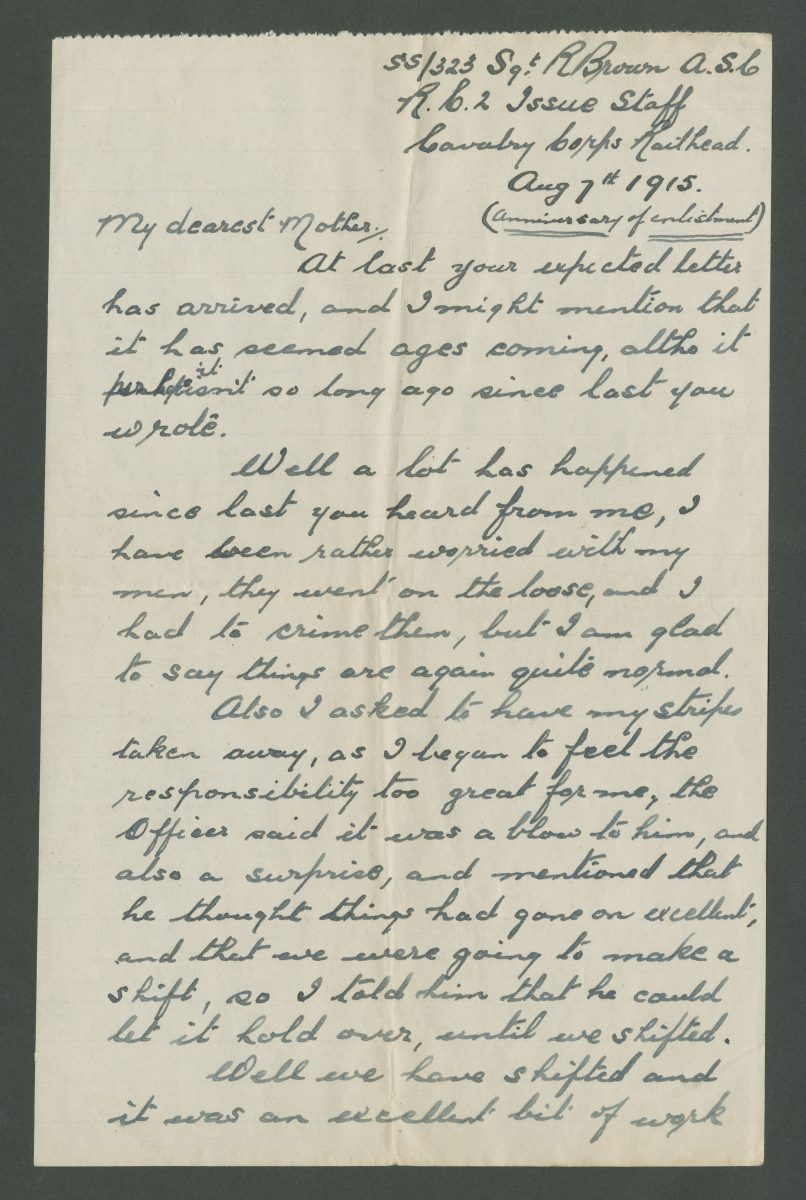 SS/323 Sgt. R Brown A.S.C
R.C.2 Issue Staff
Cavalry Corps Railhead.
Aug 7th 1915.
(Anniversary of enlistment)
My dearest Mother,
At last your expected letter
has arrived, and I might mention that
it has seemed ages coming, altho it
it isn't so long ago since last you
wrote.
Well a lot has happened
since last you heard from me, I
have been rather worried with my
men, they went on the loose, and I
had to crime them, but I am glad
to say things are again quite normal.
Also I asked to have my stripes
taken away, as I began to feel the
responsibility too great for me, the
Officer said it was a blow to him, and
also a surprise, and mentioned that
he thought things had gone on excellent,
and that we were going to make a
shift, so I told him that he could
let it hold over, until we shifted.
Well we have shifted and
it was an excellent bit of work